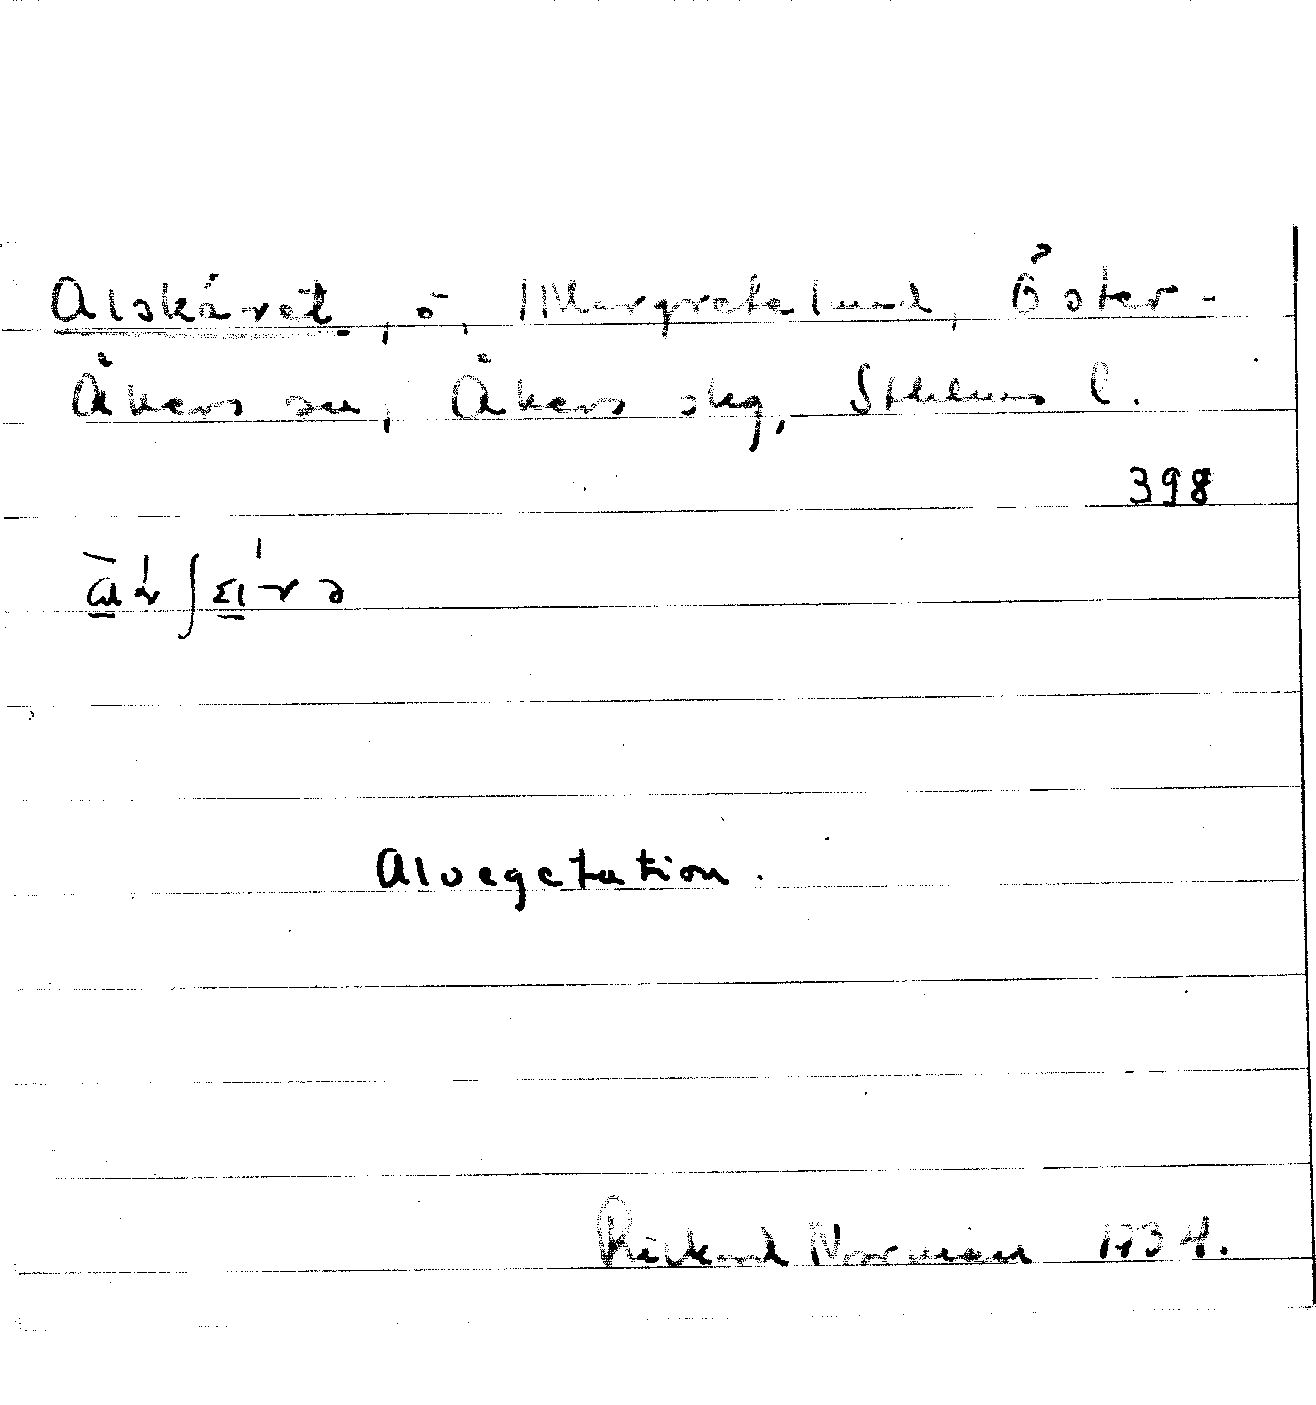 Alskäret, ö, Margretelund, Öster-
Åkers sn, Åkers skg, Sthlms l.
398
Alvegetation.
Rickard Norman 1934.